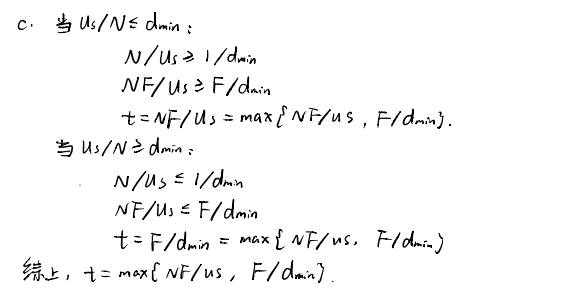 c. 当 us/N ≤ dmin:
N/us ≥ 1/dmin
NF/us ≥ F/dmin
t = NF/us = max{ NF/us , F/dmin}.
当 us/N ≥ dmin:
N/us ≤ 1/dmin
NF/us ≤ F/dmin
t = F/dmin = max{ NF/us, F/dmin}
综上, t = max{ NF/us , F/dmin}.